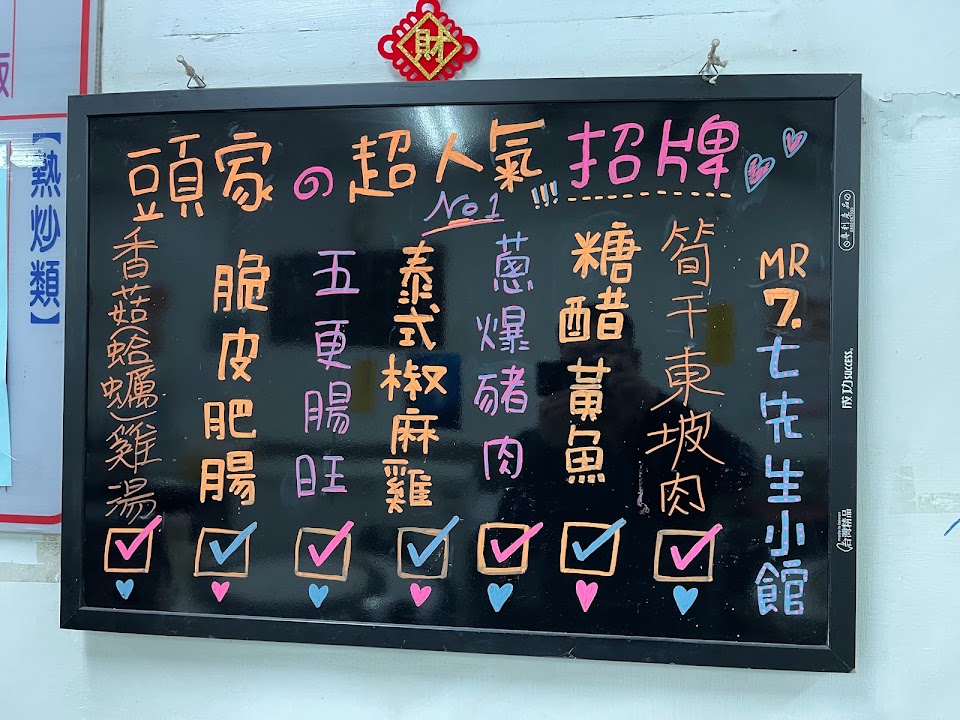 財
頭家の超人氣招牌
No 1 !!!
MR
7.
七先生小館
筍干東坡肉
糖醋黃魚
蔥爆豬肉
泰式椒麻雞
五更腸旺
脆皮肥腸
香菇(蛤蠣)雞湯
【熱炒類】
專利產品
成功 SUCCESS
台灣精品